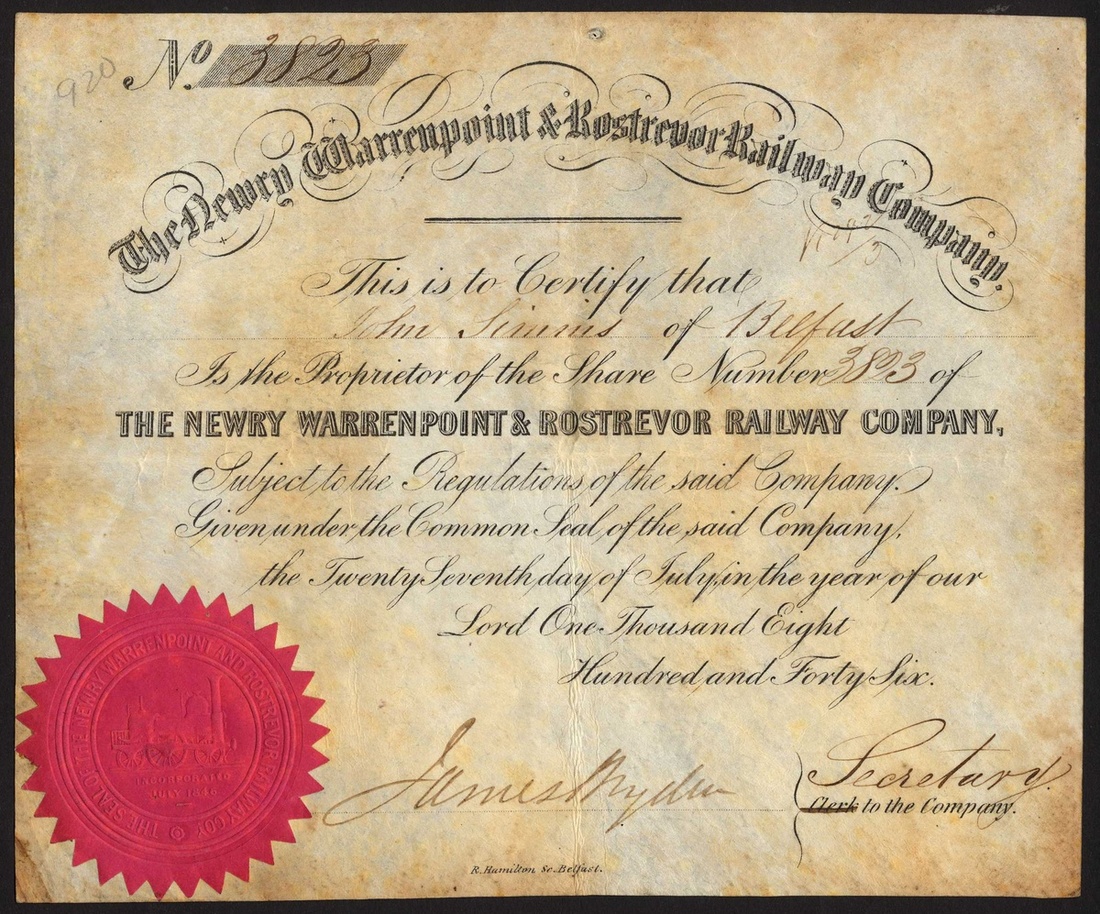 920
No. 3823
The Newry Warrenpoint & Rostrevor Railway Company.
This is to Certify that
John Simms of Belfast
Is the Proprietor of the Share Number 3823 of
THE NEWRY WARRENPOINT & ROSTREVOR RAILWAY COMPANY,
Subject to the Regulations of the said Company.
Given under the Common Seal of the said Company,
the Twenty Seventh day of July, in the year of our
Lord One Thousand Eight
Hundred and Forty Six.
THE SEAL OF THE NEWRY WARRENPOINT AND ROSTREVOR RAILWAY COY
INCORPORATED
JULY 1846
James
Secretary.
Clerk to the Company.
R. Hamilton Sc. Belfast.